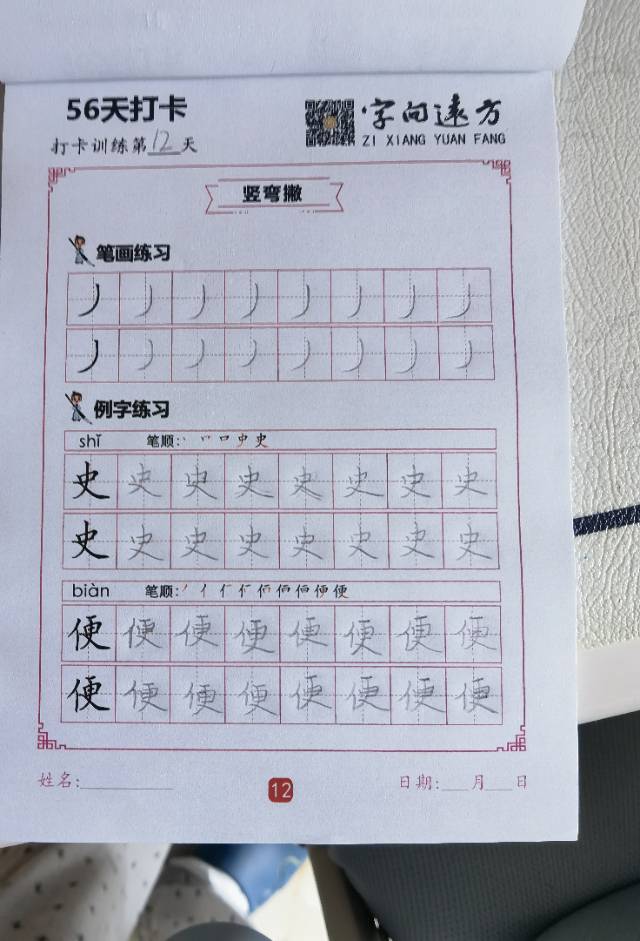 56天打卡
字向远方
打卡训练第12天
ZI XIANG YUAN FANG
竖弯撇
笔画练习
丿丿丿丿丿丿丿丿
丿丿丿丿丿丿丿丿
例字练习
shǐ 笔顺:丶 丷 口 史 史
史史史史史史史史
史史史史史史史史
biàn 笔顺:
便便便便便便便便
便便便便便便便便
姓名:
12
日期: 月 日